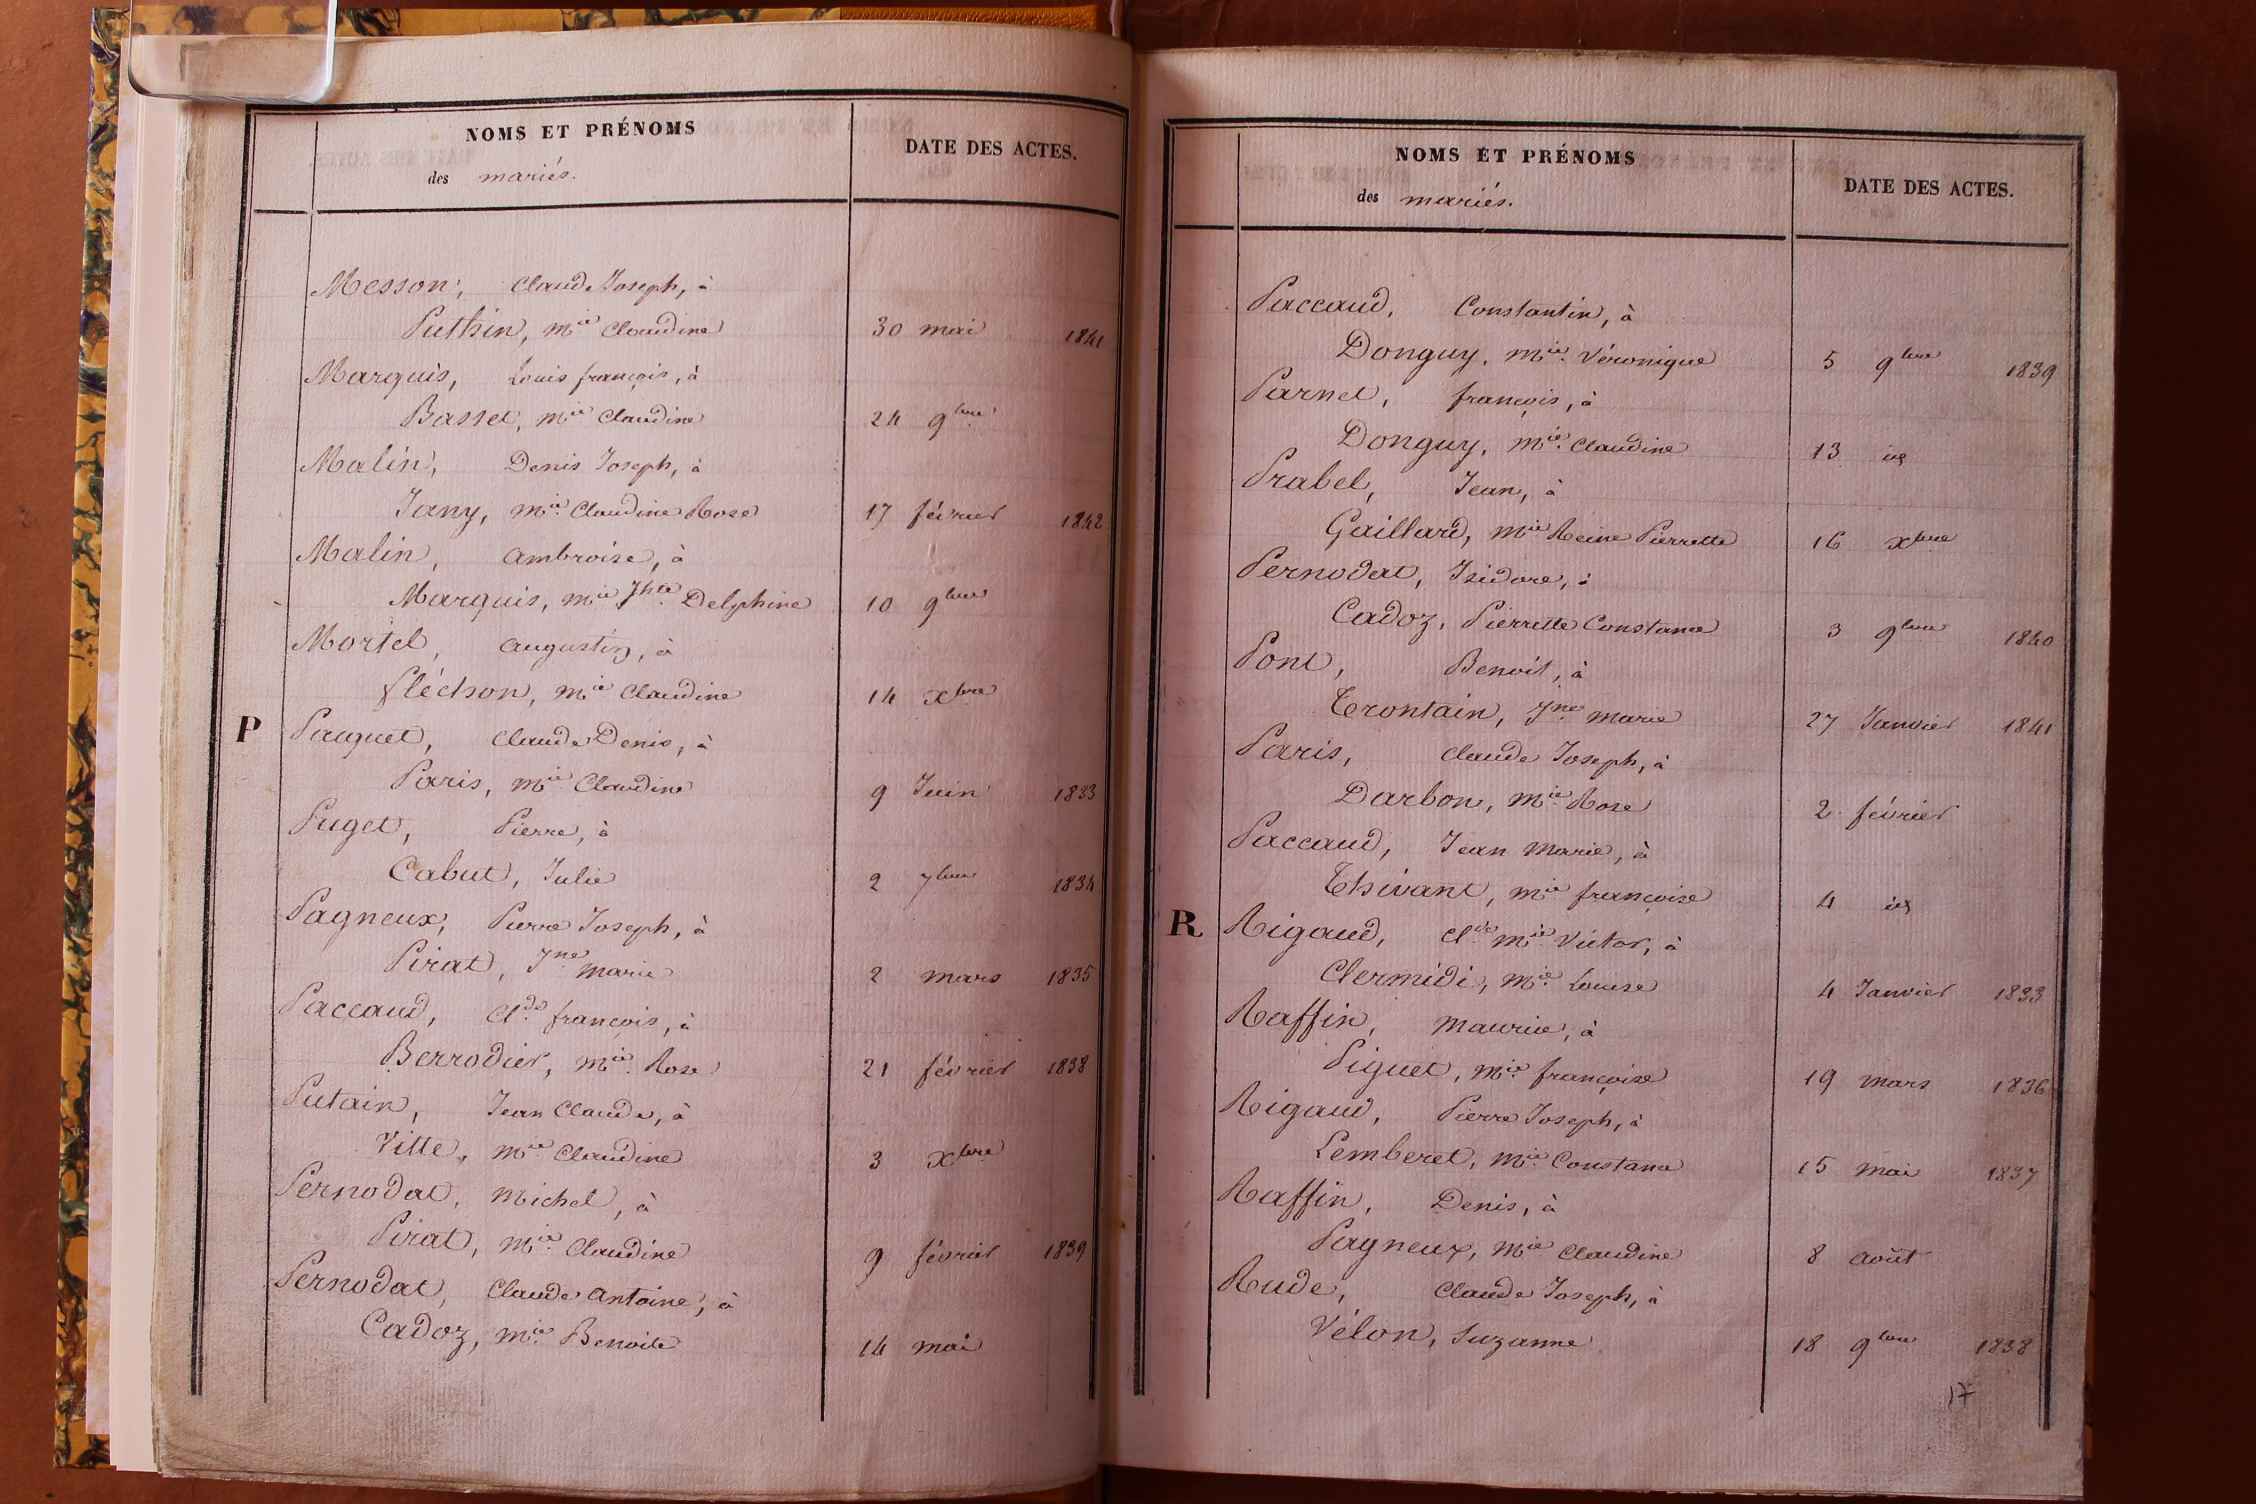 NOMS ET PRÉNOMS
des mariés.
DATE DES ACTES.
Messon, Claude Joseph, à
Puthin, Mie Claudine 30 mai 1841
Marquis, Louis françois, à
Basset, Mie Claudine 24 9bre
Malin, Denis Joseph, à
Jany, Mie Claudine Rose 17 février 1842
Malin, Ambroise, à
Marquis, Mie Jhte Delphine 10 9bre
Mortel, Augustin, à
fléchon, Mie Claudine 14 xbre
P
Pauget, Claude Denis, à
Paris, Mie Claudine 9 Juin 1833
Puget, Pierre, à
Cabut, Julie 2 7bre 1834
Pagneux, Pierre Joseph, à
Pirat, Jne Marie 2 mars 1835
Paccaud, Clde françois, à
Berrodier, Mie Rose 21 février 1838
Putain, Jean Claude, à
Vitte, Mie Claudine 3 xbre
Pernodat, Michel, à
Pirat, Mie Claudine 9 février 1839
Pernodat, Claude Antoine, à
Cadoz, Mie Benoite 14 mai
NOMS ET PRÉNOMS
des mariés.
DATE DES ACTES.
Paccaud, Constantin, à
Donguy, Mie Véronique 5 9bre 1839
Parnet, françois, à
Donguy, Mie Claudine 13 id
Prabel, Jean, à
Gaillard, Mie Reine Pierrette 16 xbre
Pernodat, Isidore, à
Cadoz, Pierrette Constance 3 9bre 1840
Pont, Benoit, à
Trontain, Jne Marie 27 Janvier 1841
Paris, Claude Joseph, à
Darbon, Mie Rose 2 février
Paccaud, Jean Marie, à
Thivant, Mie françoise 4 id
R
Rigaud, Cl.de Mie Victor, à
Clermidi, Mie Louise 4 Janvier 1833
Raffin, Maurice, à
Piguet, Mie françoise 19 mars 1836
Rigaud, Pierre Joseph, à
Lemberet, Mie Constance 15 mai 1837
Raffin, Denis, à
Pagneux, Mie Claudine 8 août
Rude, Claude Joseph, à
Vélon, Suzanne 18 9bre 1838
17